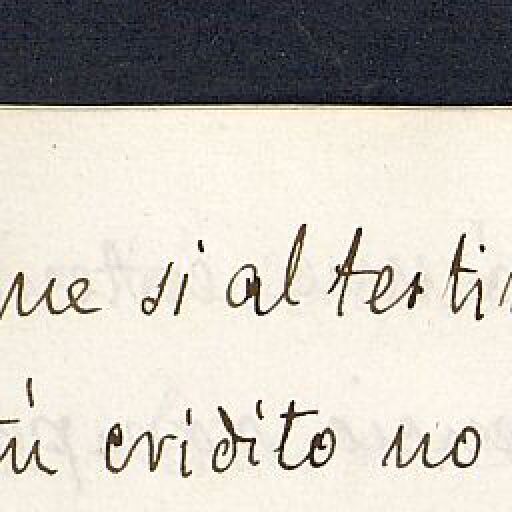 ne si al testi
tù eridito no